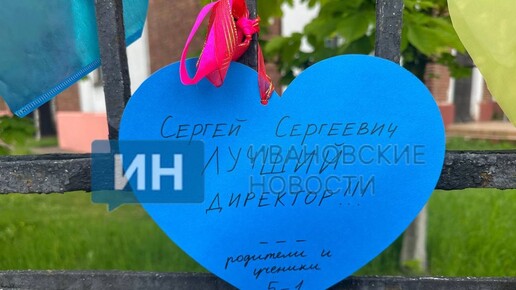 Сергей Сергеевич
ЛУЧШИЙ
ДИРЕКТОР!!!...
---
родители и
ученики
5-1
ИН
ИВАНОВСКИЕ
НОВОСТИ